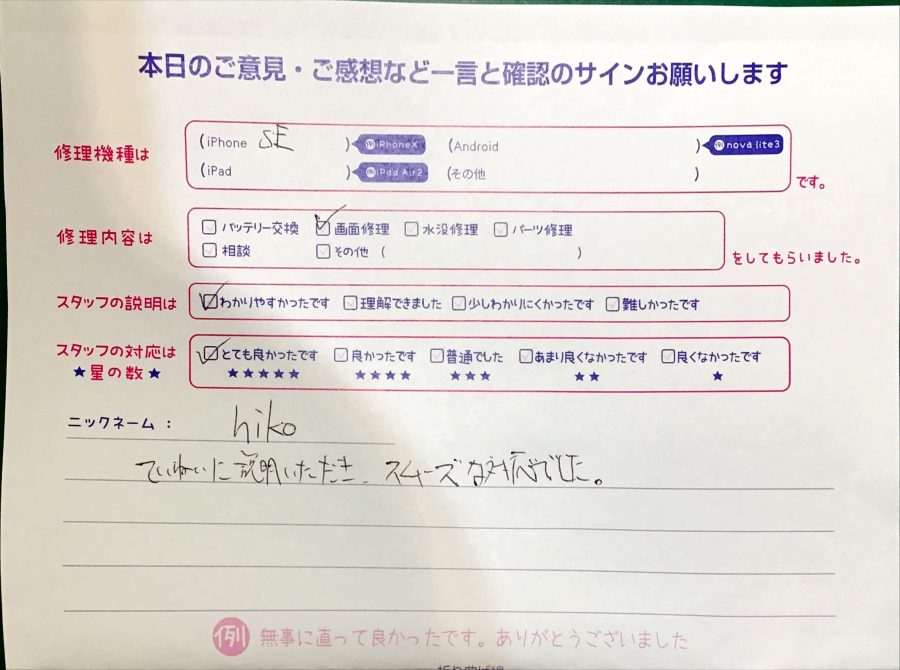 本日のご意見・ご感想など一言と確認のサインお願いします
修理機種は
(iPhone SE ) 例iPhoneX (Android ) 例nova lite3
(iPad ) 例iPad Air2 (その他 ) です。
修理内容は
バッテリー交換 画面修理 水没修理 パーツ修理
相談 その他 ( ) をしてもらいました。
スタッフの説明は わかりやすかったです 理解できました 少しわかりにくかったです 難しかったです
スタッフの対応は とても良かったです 良かったです 普通でした あまり良くなかったです 良くなかったです
★星の数★ ★★★★★ ★★★★ ★★★ ★★ ★
ニックネーム： hiko
ていねいに説明いただき、スムーズな対応でした。
例 無事に直って良かったです。ありがとうございました